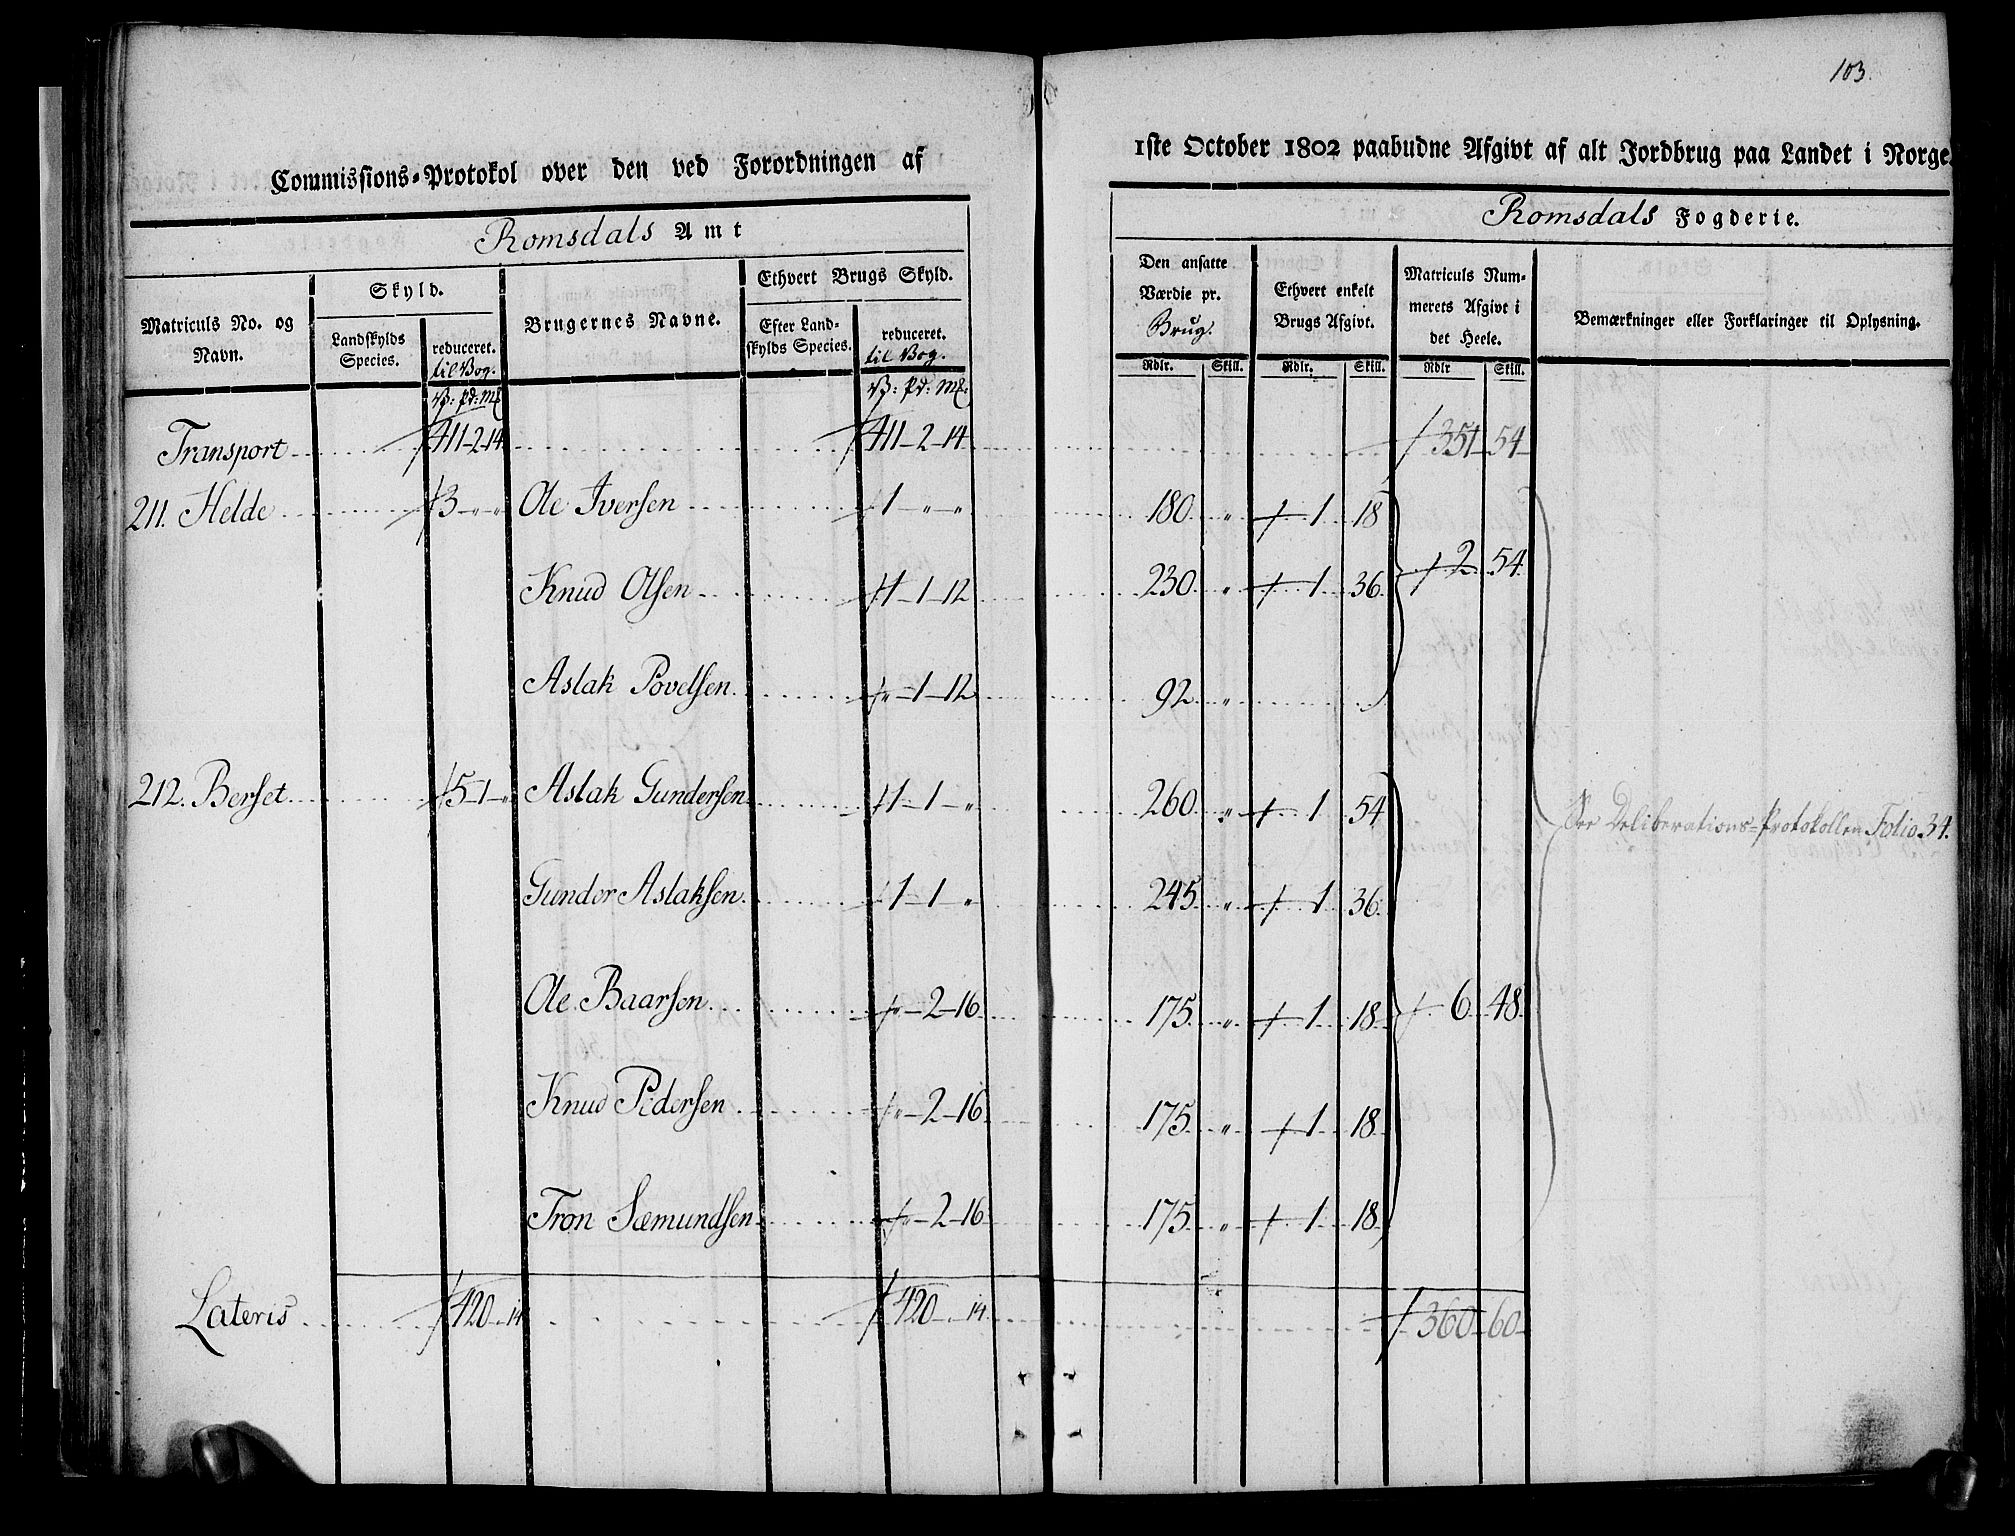 103.
Commissions-Protokol over den ved Forordningen af 1ste October 1802 paabudne Afgivt af alt Jordbrug paa Landet i Norge.
Romsdals Amt
Romsdals Fogderie.
Matriculs No. og Navn.
Skyld.
Landskylds Species.
reduceret. til Vog.
Brugernes Navne.
Ethvert Brugs Skyld.
Efter Landskylds Species.
reduceret. til Vog.
Den ansatte Værdie pr. Brug.
Ethvert enkelt Brugs Afgivt.
Matriculs Nummerets Afgivt i det Heele.
Bemærkninger eller Forklaringer til Oplysning.
V: Pd: Mk V: Pd: Mk: Rdlr. Skill. Rdlr. Skill. Rdlr Skill.
Transport 411-2-14 411-2-14 351 54
211. Helde 3 „ „ Ole Iversen 1 „ „ 180 „ 1 18
Knud Olsen 1-1-12 230 „ 1 36 2 54
Aslak Povelsen „-1-12 92 „
212. Berset 5-1-„ Aslak Gundersen 1-1-„ 260 „ 1 54
See Deliberations-Protokollen Folio 34.
Gunder Aslaksen 1-1-„ 245 „ 1 36
Ole Baarsen „-2-16 175 „ 1 18 6 48
Knud Pedersen „-2-16 175 „ 1 18
Tron Sæmundsen „-2-16 175 „ 1 18
Lateris 420 „ 14 420 „ 14 360 60